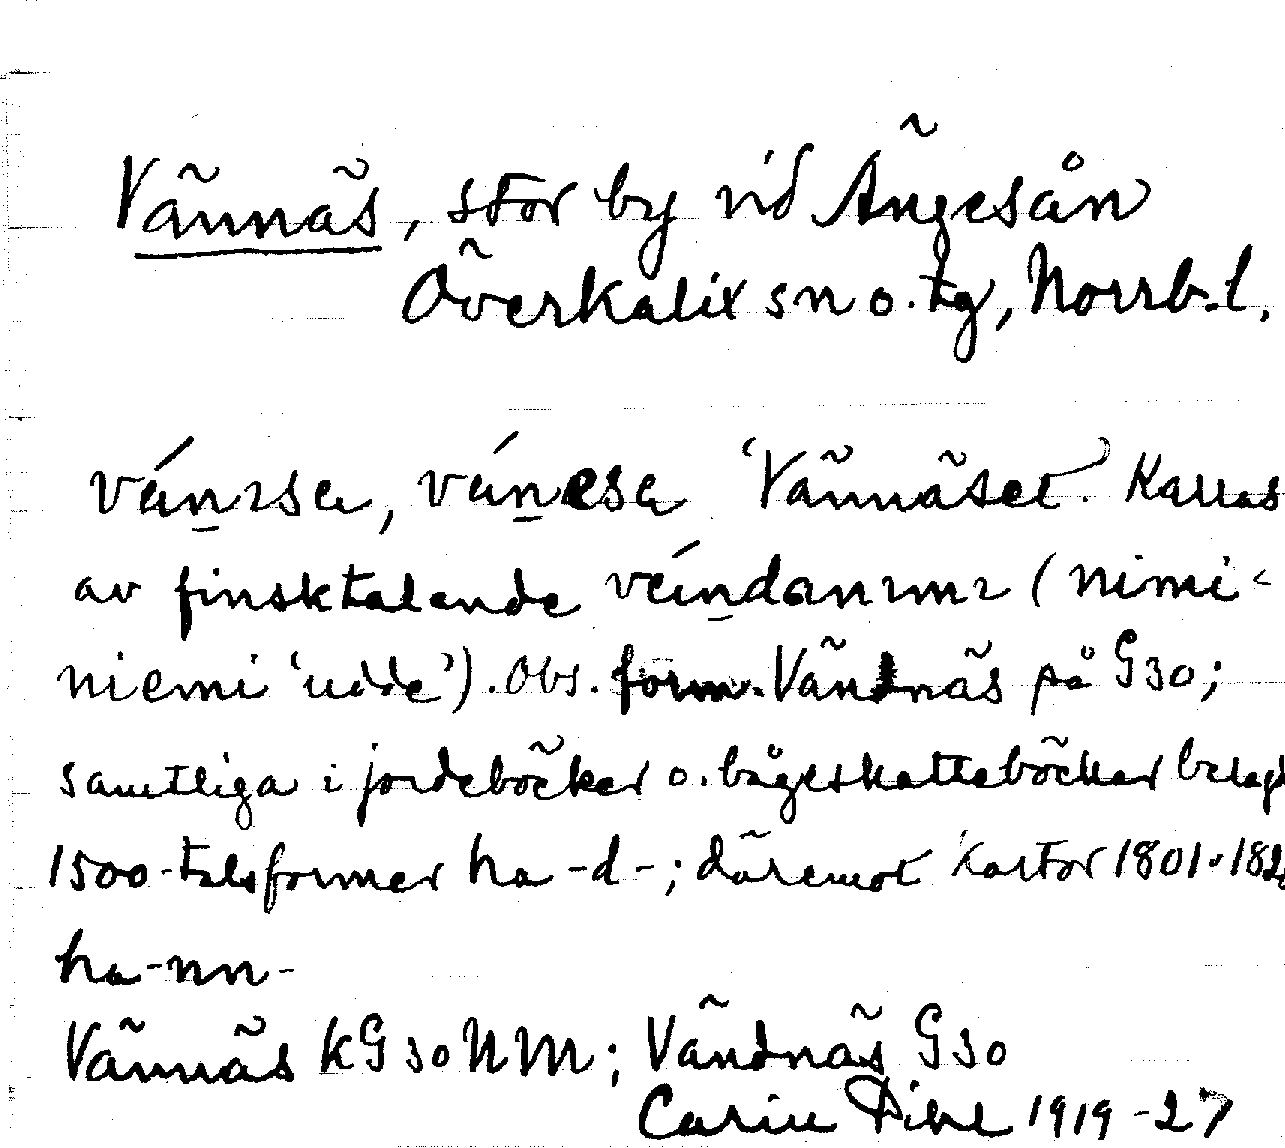 Vännäs, stor by vid Ängesån
Överkalix sn o. tg, Norrb. l.
'Vännäset'. Kallas
av finsktalande (nimi-
niemi 'udde'). Obs. form. Vändnäs på G30;
samtliga i jordeböcker o. bågeskatteböcker
1500-talsformer ha -d-; däremot kartor 1801
ha -nn-
Vännäs KG 30 NM; Vändnäs G30
Carin Pihl 1919-27